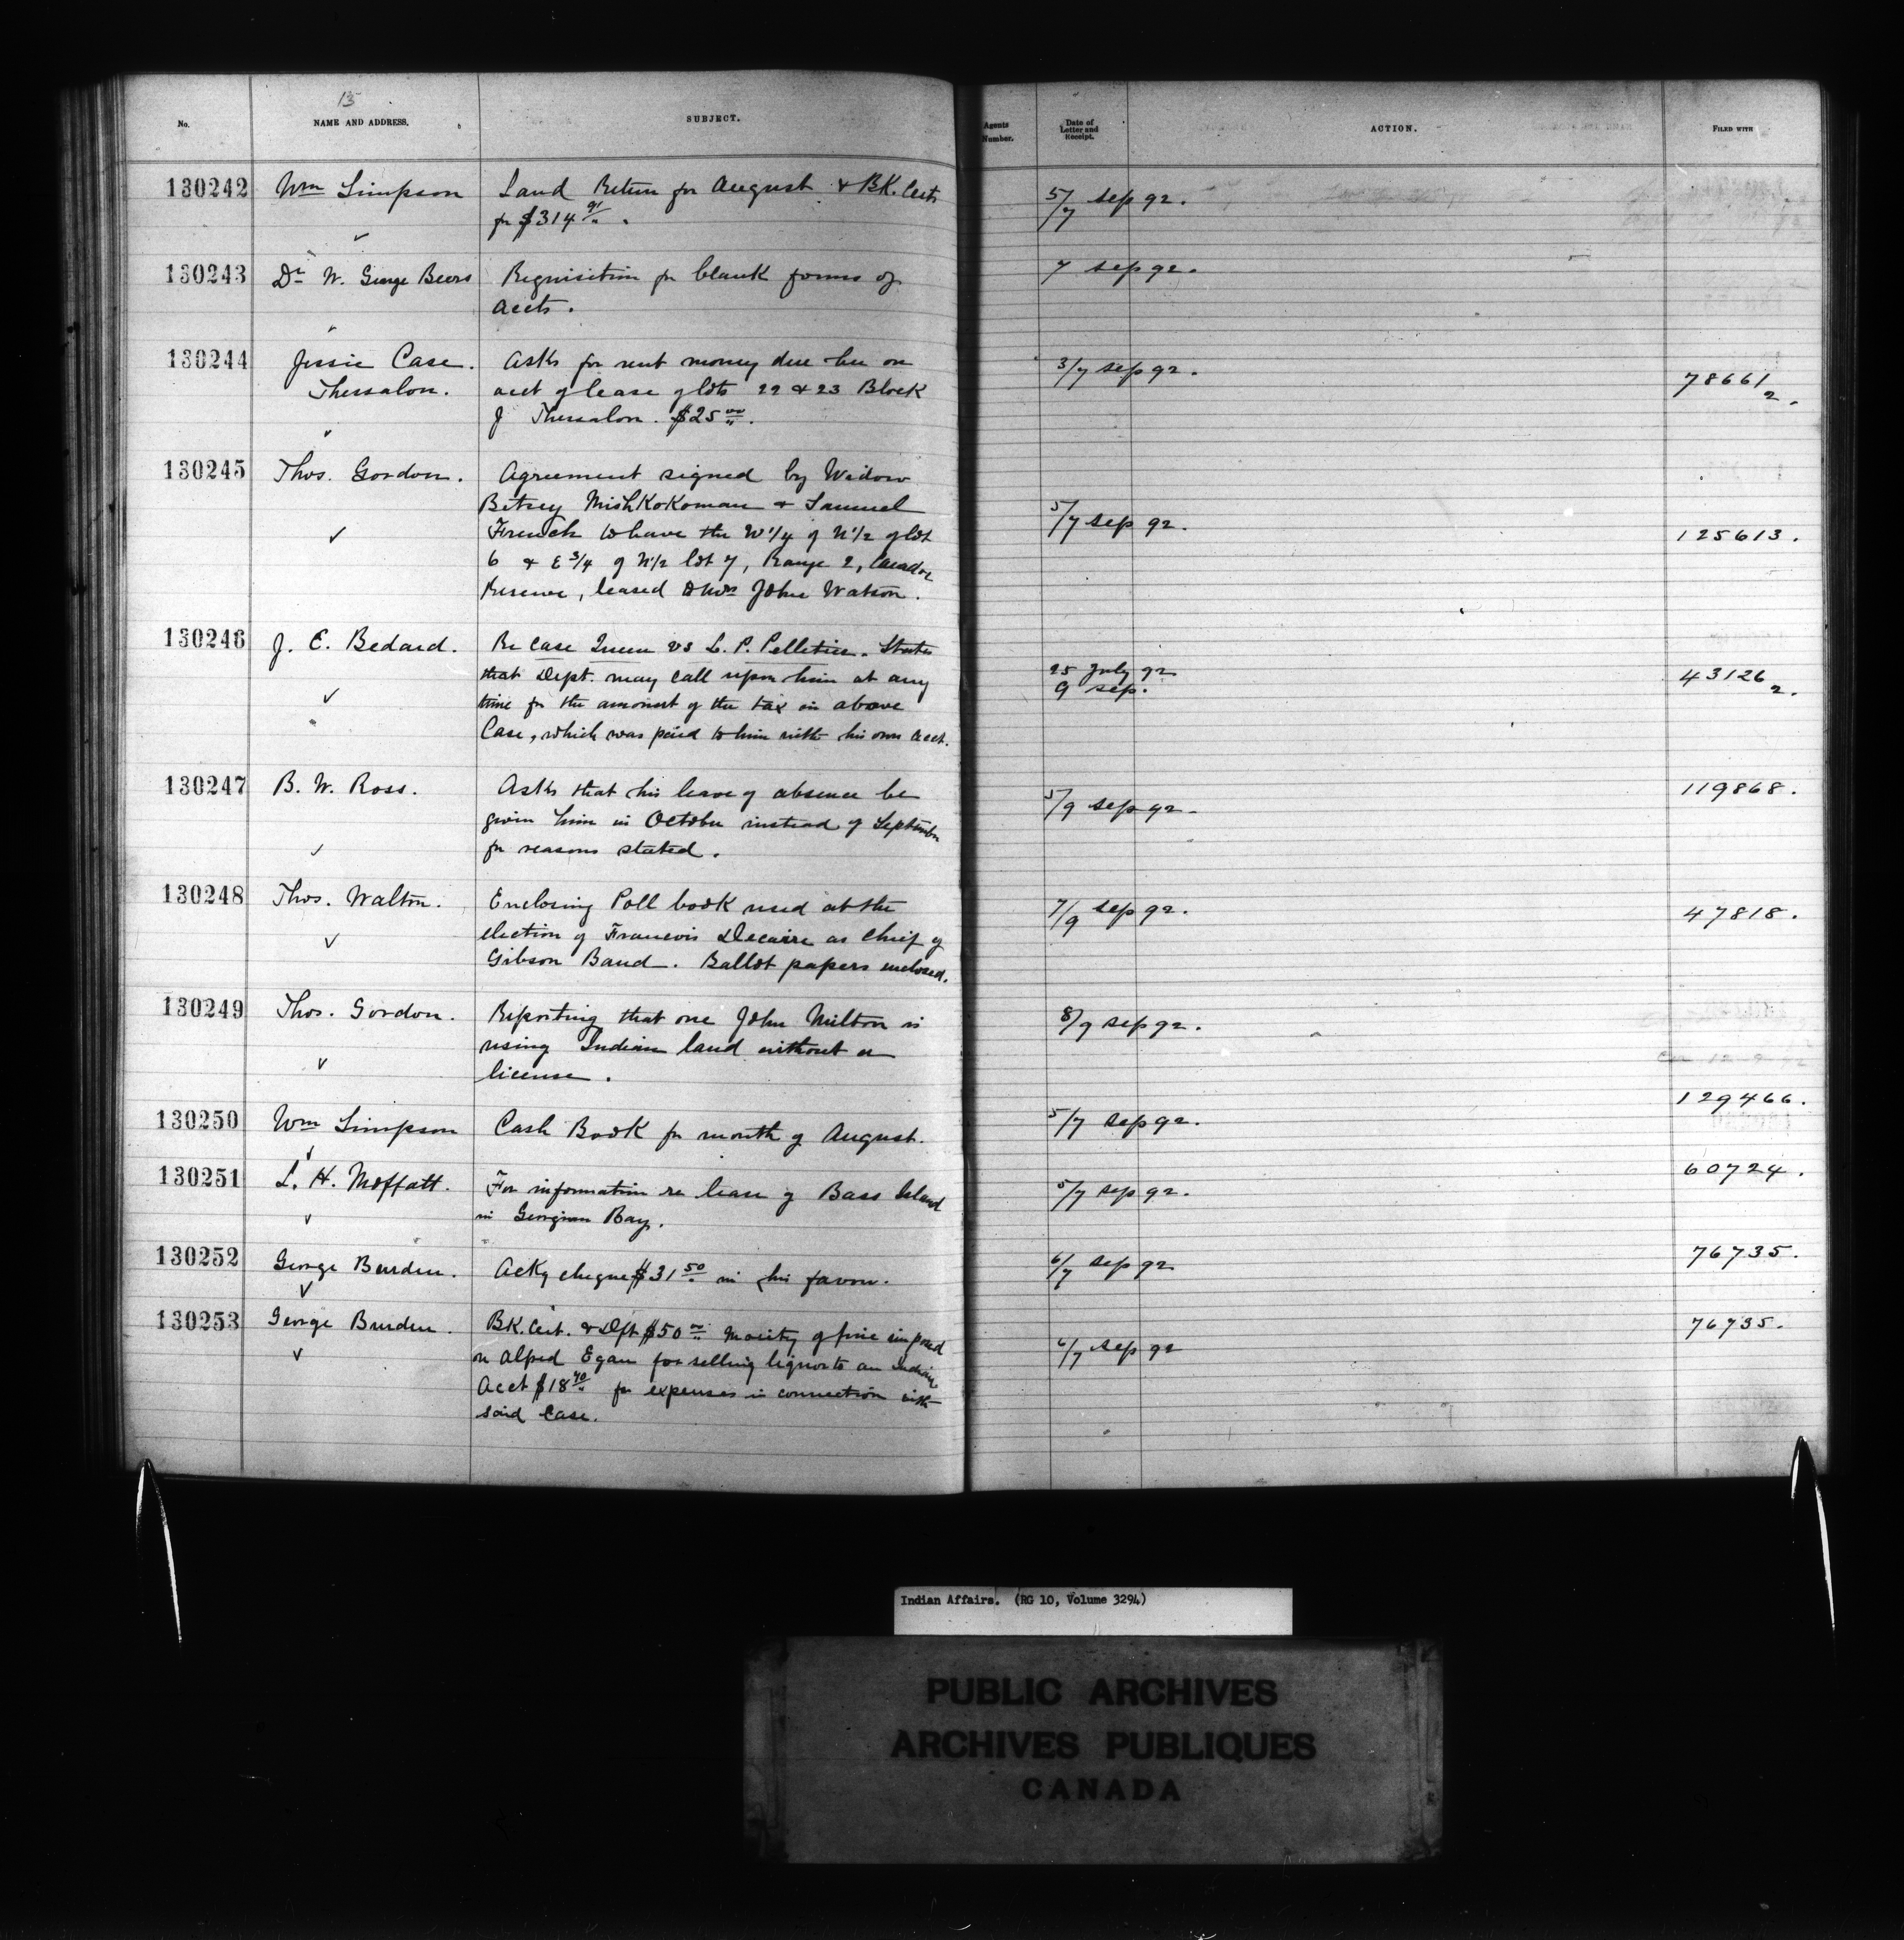 13
No. NAME AND ADDRESS. SUBJECT. Agents Number. Date of Letter and Receipt. ACTION. FILED WITH
130242 Wm Simpson Land Return for August & BK. Certs 5/7 Sep 92.
for $314 91/".
130243 Dr W. George Beers Requisition for blank forms of 7 Sep 92.
accts.
130244 Jessie Case. Asks for rent money due her on 3/7 Sep 92.
Thessalon. acct of lease of lots 22 & 23 Block 78661/2.
J Thessalon. $25 00/".
130245 Thos. Gordon. Agreement signed by Widow
Betsey MishKoKoman & Samuel 5/7 Sep 92.
French to have the W 1/4 of N 1/2 of lot 125613.
6 & E 3/4 of N 1/2 lot 7, Range 2, Carador
Reserve, leased John Watson.
130246 J. E. Bedard. Re Case Queen vs L. P. Pelletier. States
that Dept. may call upon him at any 25 July 92 43126/2.
time for the amount of the tax in above 9 Sep.
Case, which was paid to him with his own acct.
130247 B. W. Ross. Asks that his leave of absence be 5/9 Sep 92. 119868.
given him in October instead of September
for reasons stated.
130248 Thos. Walton. Enclosing Poll book used at the 7/9 Sep 92. 47818.
election of Francois Decaire as Chief of
Gibson Band. Ballot papers enclosed.
130249 Thos. Gordon. Reporting that one John Milton is 8/9 Sep 92.
using Indian land without a
license.
129466.
130250 Wm Simpson Cash Book for month of August. 5/7 Sep 92.
130251 L. H. Moffatt. For information re lease of Bass Island 5/7 Sep 92. 60724.
in Georgian Bay.
130252 George Burden. Ackg cheque $31 50/" in his favour. 6/7 Sep 92 76735.
130253 George Burden. BK. Cert. & Dft $50 00/" Moiety of fine imposed 6/7 Sep 92 76735.
on Alfred Egan for selling liquor to an Indian,
Acct $18 70/" for expenses in connection with
said Case.
Indian Affairs. (RG 10, Volume 3294)
PUBLIC ARCHIVES
ARCHIVES PUBLIQUES
CANADA